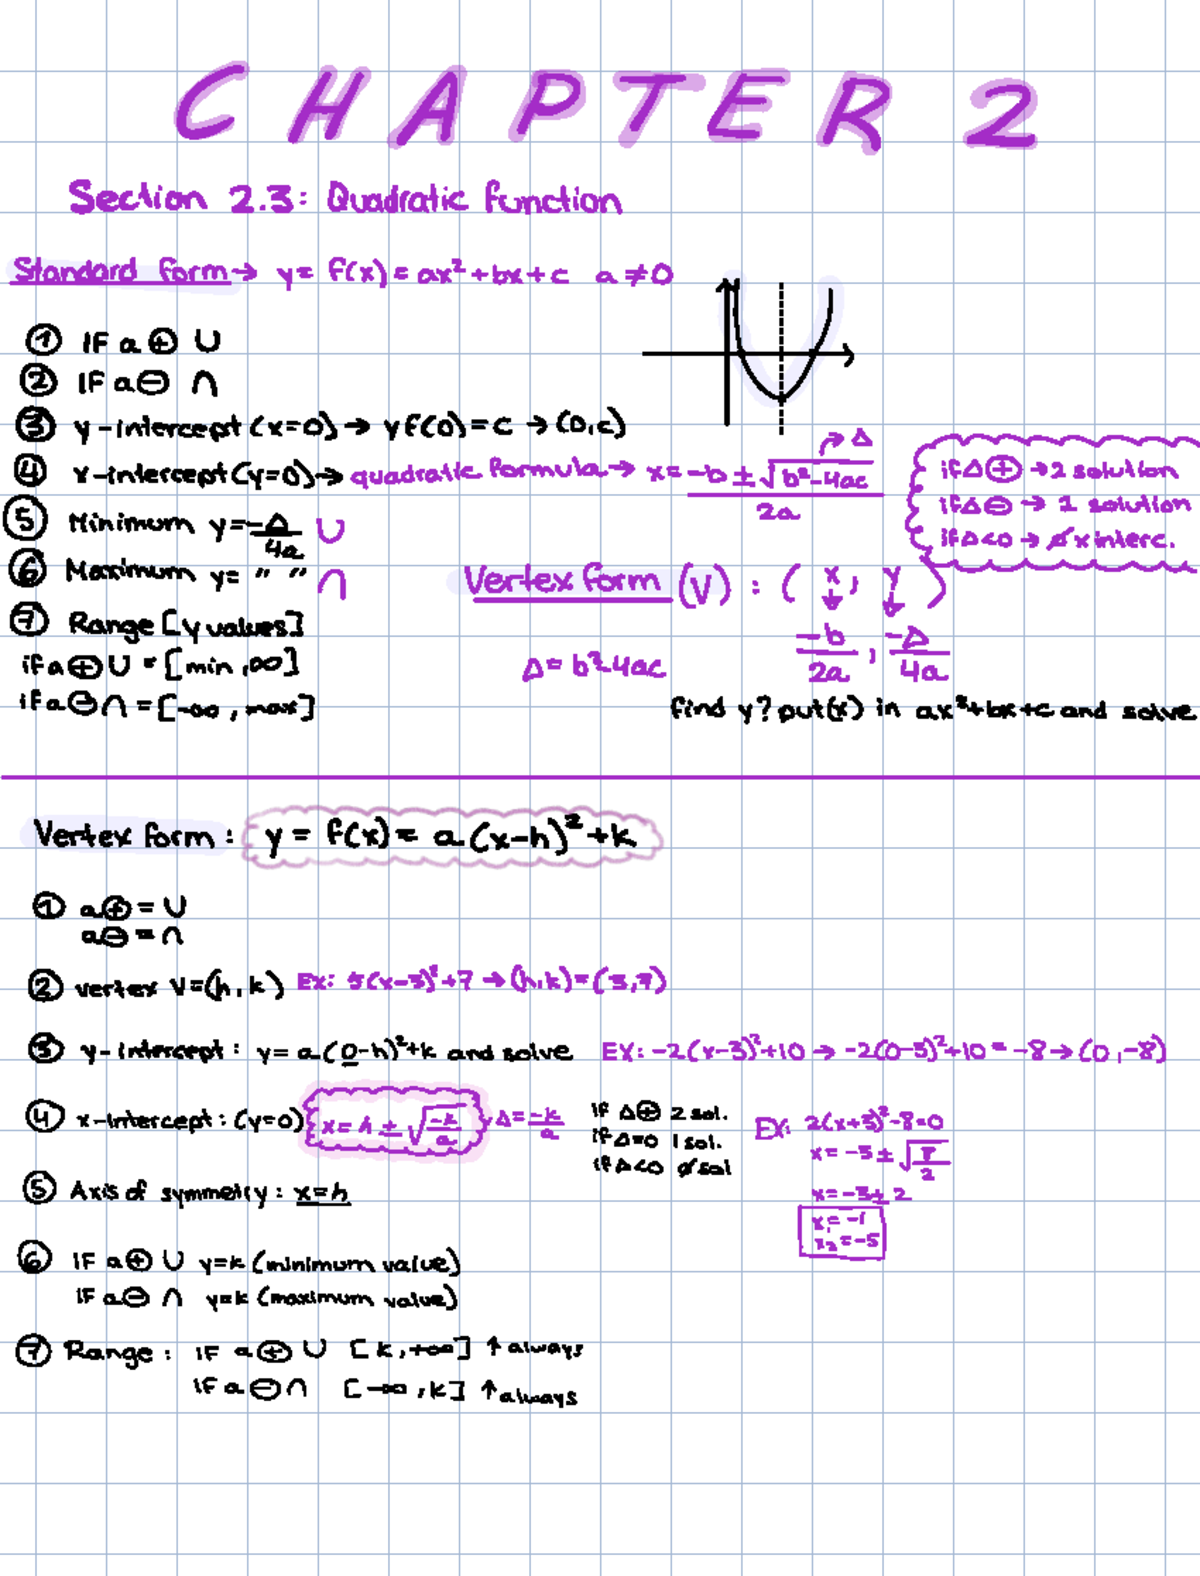 CHAPTER 2
Section 2.3: Quadratic function
Standard form → y= f(x) = ax²+bx+c a≠0
① IF a ⊕ ∪
② IF a ⊖ ∩
③ y-intercept (x=0) → y f(0) = c → (0,c)
④ x-intercept (y=0) → quadratic formula → x = -b ± √b²-4ac / 2a
→ Δ
if Δ ⊕ → 2 solution
if Δ ⊖ → 1 solution
if Δ<0 → ∅ x interc.
⑤ Minimum y = -Δ/4a ∪
⑥ Maximum y= " " ∩
⑦ Range [y values]
if a ⊕ ∪ = [min, ∞]
if a ⊖ ∩ = [-∞, max]
Vertex form (V) : ( x, y )
↓ ↓
-b/2a , -Δ/4a
Δ = b²-4ac
find y? put (x) in ax²+bx+c and solve
Vertex form : y = f(x) = a(x-h)²+k
① a⊕ = ∪
a⊖ = ∩
② vertex V=(h,k) Ex: 5(x-3)²+7 → (h,k)=(3,7)
③ y-intercept : y= a(0-h)²+k and solve EX: -2(x-3)²+10 → -2(0-3)²+10 = -8 → (0,-8)
④ x-intercept : (y=0) x = h ± √-k/a Δ = -k/a
if Δ⊕ 2 sol.
if Δ=0 1 sol.
if Δ<0 ∅ sol
EX: 2(x+3)²-8=0
x = -3 ± √8/2
x = -3 ± 2
x₁ = -1
x₂ = -5
⑤ Axis of symmetry : x=h
⑥ IF a⊕ ∪ y=k (minimum value)
IF a⊖ ∩ y=k (maximum value)
⑦ Range : IF a ⊕ ∪ [k, +∞] ↑ always
IF a ⊖ ∩ [-∞, k] ↑ always